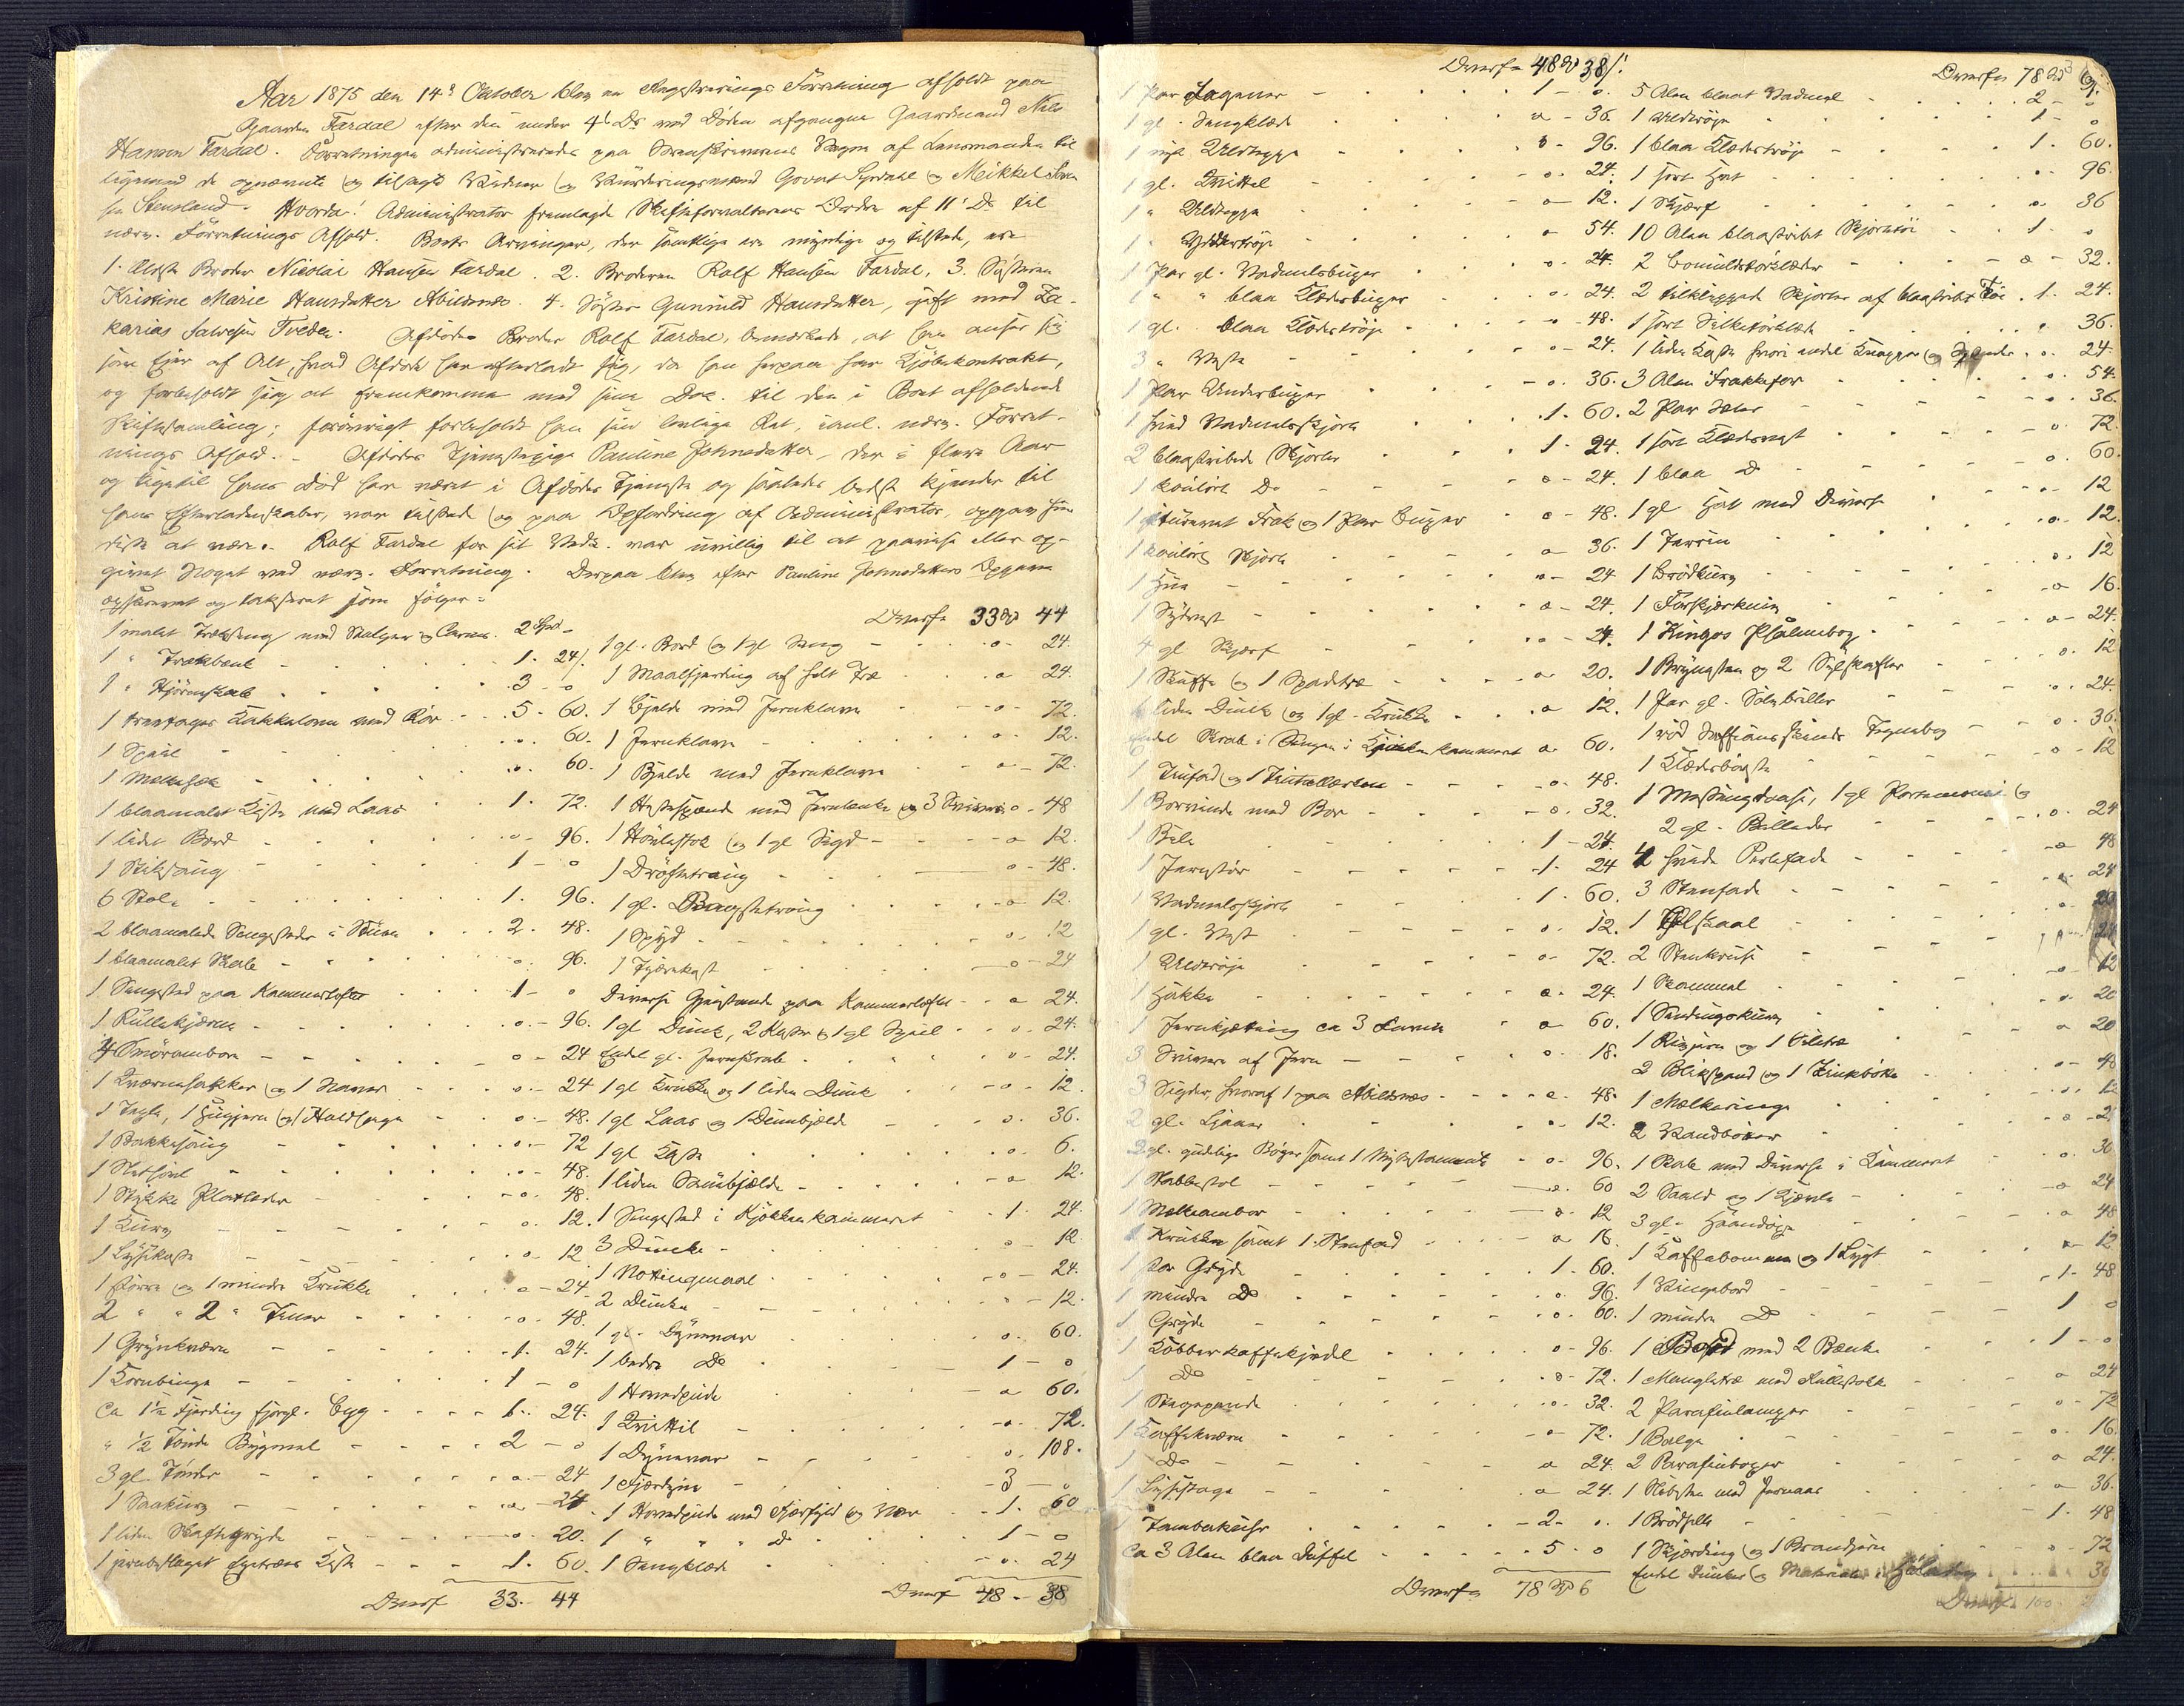 Aar 1875 den 14de Oktober blev en Registrerings Forretning afholdt paa
Gaarden Fardal efter den under 4de Ds ved Døden afgangne Gaardmand Nils
Hansen Fardal. Forretningen administreredes paa Sorenskriverens Vegne af Lensmanden til
ligemed de opnævnte og tilsagte Vidner og Vurderingsmænd Govert Sirdal og Meikkel Sven
sen Stensland. Hvorda! Administrator fremlagde Skifteforvalterens Ordre af 11te Ds til
nærv. Forretnings Afhold. Boets Arvinger, der samtlige ere myndige og tilstede, ere
1. Afdøde Broder Nicolai Hansen Fardal. 2. Broderen Rolf Hansen Fardal, 3. Søsteren
Kristine Marie Hansdatter Abildsnæs. 4. Søster Gunnild Hansdatter, gift med Za-
karias Salvesen Tveden. Afdødes Broder Rolf Fardal, bemærkede, at han anser sig
som Eier af Alt, hvad Afdøde har efterladt sig, da han herpaa har Kjøbekontrakt,
og forbeholdt sig at fremkomme med sine Doc. til den i Boet afholdende
Skiftesamling; forøvrigt forbeholdt han sin lovlige Ret, i anl. nærv. Forret-
nings Afhold. - Afdødes Tjenestepige Pauline Johnsdatter, der i flere Aar
og ligetil hans Død har været i Afdødes Tjeneste og saaledes bedst kjender til
hans Efterladenskaber, var tilstede og paa Opfordring af Administrator, opgav hun
disse at være. Rolf Fardal for sit Vedk. var uvillig til at paavise eller op-
givet Noget ved nærv. Forretning. Derpaa blev efter Pauline Johnsdatters Opgave
opskrevet og takseret som følger:
1 malet Træseng med Stolper og Carm. 2 Spd -
1 " Trækbænk - 1. 24/.
1 " Hjørneskab 3 - o
1 treetages Kakkelovn med Rør 5 - 60.
1 Speil o. 60.
1 Melkesæk o. 60.
1 blaamalet Kiste med Laas 1. 72.
1 lidet Bord o - 96.
1 Stiksaug 1 - o
6 Stole 1. 96.
2 blaamalede Sengesteder i Stuen 2. 48.
1 blaamalet Skab o. 96.
1 Sengested paa Kammerloftet 1 - o
1 Rullekjærre o. - 96.
4 Smørambere o - 24
1 Kværnehakker og 1 Naver o. - 24
1 Tægle, 1 Hugjern og 1 Haldhage o. - 48.
1 Bakkesaug o - 72
1 Slethøvl o - 48.
1 Stykke Platlæder o - 48.
1 Kurv o. 12.
1 Lysekaste o 12
1 større og 1 mindre Krukke o - 24
2 " " 2 " Tiner o. 48.
1 Grynkværn 1. 24.
1 Kornbinge 1 - o
Ca 1½ Fjerding fjorgl. Byg 1. 24.
" ½ Tønde Bygmel 2 - o
3 gl. Tønder o. - 24
1 Saakurv o. - 24
1 liden Skaftegryde o. 20.
1 jernbeslaget Egetræes Kiste 1. 60.
Overf 33. 44
Overført 33 Spd 44
1 gl. Bord og 1 gl Seng o - 24.
1 Maalfjerding af helt Træ o 24.
1 Bjelde med Jernklave o - 72.
1 Jernklave o - 12.
1 Bjelde med Jernklave o - 72.
1 Hestespænd med Jernlænke og 3 Svivere o - 48
1 Høvlestok og 1 gl Sigd - o 12.
1 Drøftetraug o - 48.
1 gl. Bagstetraug - o 12.
1 Spyd o. 12
1 Tjærekost o - 24
Diverse Gjenstande paa Kammerloftet o 24.
1 gl Dunk, 2 Kasser og 1 gl Speil o. 24.
Endel gl. Jernskrab o - 24.
1 gl Krukke og 1 liden Dunk - o - 12.
1 gl Laas og 1 Dunbjelde o. 36.
1 gl Kiste o. 6.
1 liden Saubjelde - o 12.
1 Sengested i Kjøkkenkammeret 1. 24.
3 Dunke - o 12.
1 Notingmaal - o - 24.
2 Dunke - - 12.
1 gl. Dynevar o. 60.
1 bedre Do 1 - o
1 Hovedpude o 60.
1 Kvittil - o. 72.
1 Dynevar o. 108.
1 Fjærdyne 3 - o
1 Hovedpude med Fjærfyld og Vær 1. 60
1 " " " Do 1 - o
1 Sengklæde - o. 24
Overf 48 - 38
Overført 48 Spd 38/.
1 Par Lagener - 1 - o.
1 gl. Sengklæde o - 36.
1 nyt Uldteppe o - 96.
1 gl. Kvittel o. 24.
1 " Uldteppe o - 12.
1 " Yddertrøje o 54.
1 Par gl. Vadmelsbuxer o - 24.
1 " " blaa Klædesbuxer o. 24.
1 gl. blaa Klædestrøje - o - 48.
3 " Veste o - 24.
1 Par Underbuxer - o. 36.
1 hvid Vadmelsskjorte 1. 60.
2 blaastribede Skjorter 1 - 24.
1 koulørt Do o - 24.
1 stuvenet Frak og 1 Par buxer o - 48.
1 koulørt Skjorte o 36.
1 Hue o - 24
1 Sydvest o - 24.
4 gl Skjærf o - 24.
1 Skuffe og 1 Spadtræ o 20.
1 liden Dunk og 1 gl. Krukke o 12.
Endel Skrab i Sengen i Kjøkkenkammeret o 60.
1 Tinfad og 1 Tintallerken - o. 48.
1 Borvinde med Bor - o. 32.
1 Bile 1 - 24.
1 Jernstør - 1. 24
1 Vadmelsskjorte 1. 60.
1 gl. Vest o. 12.
1 Uldtrøje o - 72.
1 Hakke o - 24.
1 Jernkjetting ca 3 Favne o 60.
3 Svivere af Jern o. 18.
3 Sigder, hvoraf 1 paa Abildsnæs o. 48.
2 gl. Ljaaer o. 12.
2 gl. gudelige Bøger samt 1 Nytestamente - o - 96.
1 Krabbestol o. 60
1 Melkeambar - o. 12
1 Krukke samt 1. Stenfad o 16.
1 stor Gryde 1. 60.
1 mindre Do o 96.
1 Gryde o. 60.
1 Kobberkaffekjedel o - 96.
1 Do - o - 72.
1 Stegepande o. 32.
1 Kaffekværn - o - 72.
1 Do o 24.
1 Lysestage o 24.
1 Tømberkeise - 2 - o.
Ca 3 Alen blaa Düffel 5 - o
Overføres 78 Spd 6
Overført 78 Spd 6/.
5 Alen blaat Vadmel 2 - o
1 Uldtrøje 1 - o
1 blaa Klædestrøje 1. 60.
1 sort Hat o. 96.
1 Skjærf o. 36
10 Alen blaastribet Skjortetøi 1. o
2 Bomuldstørklæder - o - 32.
2 tilklippede Skjorter af blaastribet Tøi 1. 24.
1 sort Silketørklæde o 36.
1 liden Kiste hvori endel Knapper og Spænder o. 24.
3 Alen Frakkefor o. 54.
2 Par Seler o. 36.
1 sort Klædesvest - o 72.
1 blaa Do o. 60.
1 gl Hat med Diverse o. 12
1 Terrin - o. 12.
1 Brødkurv o. 12
1 Forskjærkniv - o 16.
1 Kingos Psalmebog o - 24.
1 Brynesten og 2 Sylskafter o. 12
1 Par gl. Sølvbriller o. 24.
1 rød Saffiansskinds Tegnebog - o. 36.
1 Klædesbørste - o - 12
1 Messingdaase, 1 gl Portemonnai og
2 gl. Billeder o. 24
4 hvide Perlefade - o 48
3 Stenfade o 24
1 Ølskaal o. 20
2 Stenkruse
1 Skammel - o 12
1 Sendingskurv o. 20
1 Rivjern og 1 Kiletræ o 20
2 Blikspand og 1 Zinkbøtte o - 48
1 Melkeringe o. 12
2 Vandbøtter
1 Skab med Diverse i Kammeret o. 36
2 Saald og 1 Kjørel o 24
3 gl. Haandøxe o 48
1 Kaffebomme og 1 Lygt 12
1 Vingebord 1 - 48
1 mindre Do 1 o
1 Bord med 2 Bænke 1 - o
1 Mangletræ med Rullestok o 24
2 Parafinlamper o - 72
1 Balge - o. 16.
2 Parafinbøger o 24.
1 Slibesten med Jernaas o 36.
1 Brødfjel 1. 48
1 Skjærding og 1 Brandjern o - 72
Endel Dunker og Materialer i
Overf 100